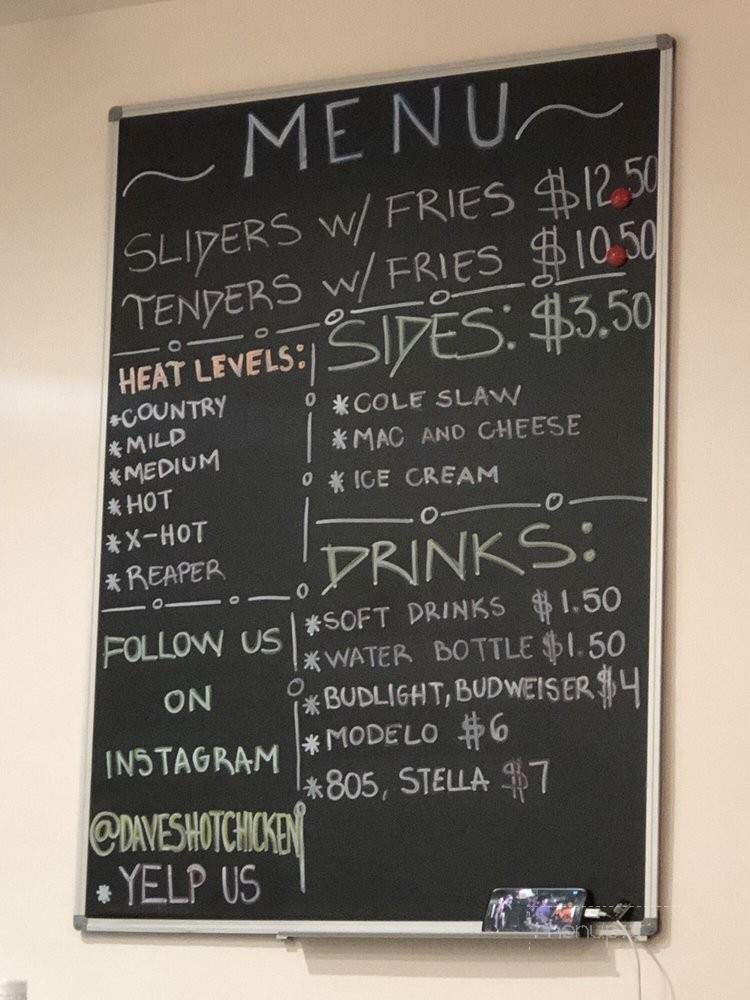 MENU
SLIDERS w/ FRIES $12.50
TENDERS w/ FRIES $10.50
HEAT LEVELS:
*COUNTRY
*MILD
*MEDIUM
*HOT
*X-HOT
*REAPER
SIDES: $3.50
*COLE SLAW
*MAC AND CHEESE
*ICE CREAM
DRINKS:
*SOFT DRINKS $1.50
*WATER BOTTLE $1.50
*BUDLIGHT, BUDWEISER $4
*MODELO $6
*805, STELLA $7
FOLLOW US
ON
INSTAGRAM
@DAVESHOTCHICKEN
* YELP US